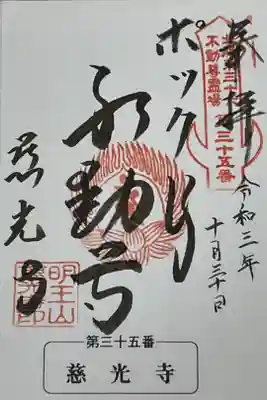 奉拝
不動尊霊場
第三十五番
令和三年
十月三十日
ポックリ
不動尊
慈光寺
第三十五番
慈光寺